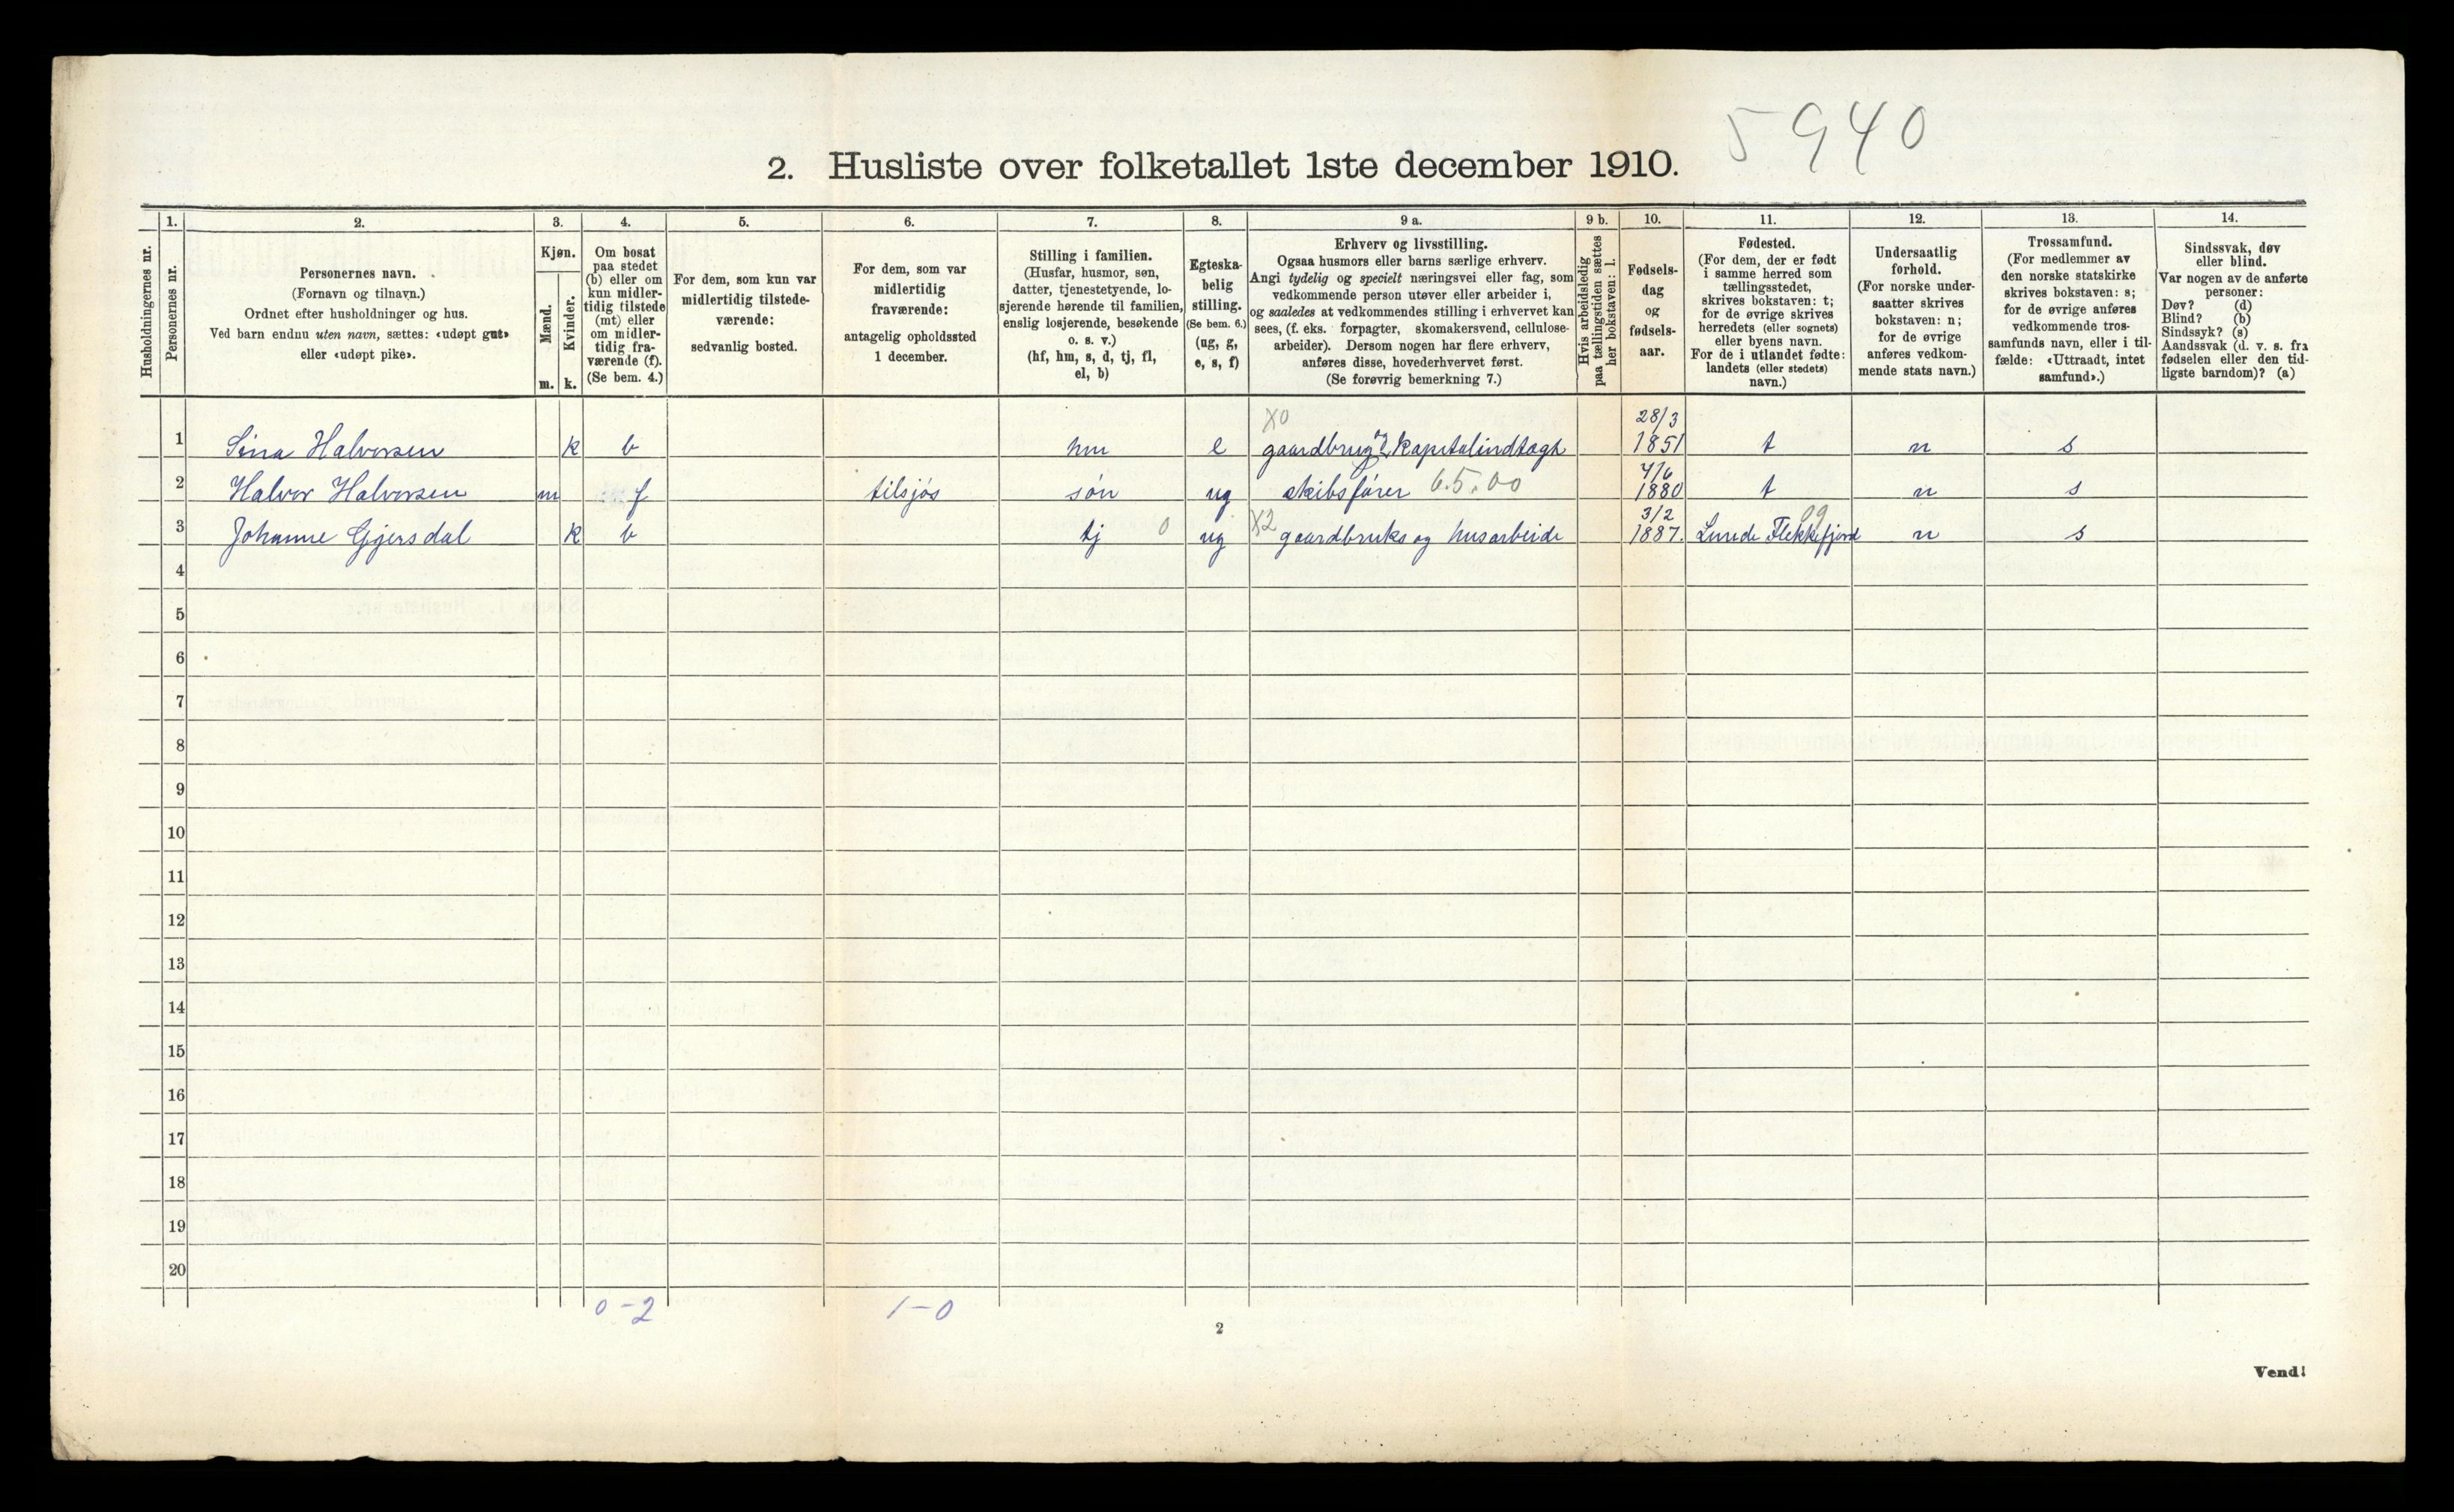 5940
2. Husliste over folketallet 1ste december 1910.
Husholdningernes nr.
1.
Personernes nr.
2.
Personernes navn.
(Fornavn og tilnavn.)
Ordnet efter husholdninger og hus.
Ved barn endnu uten navn, sættes: «udøpt gut»
eller «udøpt pike».
3.
Kjøn.
Mænd.
m.
Kvinder.
k.
4.
Om bosat
paa stedet
(b) eller om
kun midler-
tidig tilstede
(mt) eller
om midler-
tidig fra-
værende (f).
(Se bem. 4.)
5.
For dem, som kun var
midlertidig tilstede-
værende:
sedvanlig bosted.
6.
For dem, som var
midlertidig
fraværende:
antagelig opholdssted
1 december.
7.
Stilling i familien.
(Husfar, husmor, søn,
datter, tjenestetyende, lo-
sjerende hørende til familien,
enslig losjerende, besøkende
o. s. v.)
(hf, hm, s, d, tj, fl,
el, b)
8.
Egteska-
belig
stilling.
(Se bem. 6.)
(ug, g,
e, s, f)
9 a.
Erhverv og livsstilling.
Ogsaa husmors eller barns særlige erhverv.
Angi tydelig og specielt næringsvei eller fag, som
vedkommende person utøver eller arbeider i,
og saaledes at vedkommendes stilling i erhvervet kan
sees, (f. eks. forpagter, skomakersvend, cellulose-
arbeider). Dersom nogen har flere erhverv,
anføres disse, hovederhvervet først.
(Se forøvrig bemerkning 7.)
9 b.
Hvis arbeidsledig
paa tællingstiden sættes
her bokstaven: l.
10.
Fødsels-
dag
og
fødsels-
aar.
11.
Fødested.
(For dem, der er født
i samme herred som
tællingsstedet,
skrives bokstaven: t;
for de øvrige skrives
herredets (eller sognets)
eller byens navn.
For de i utlandet fødte:
landets (eller stedets)
navn.)
12.
Undersaatlig
forhold.
(For norske under-
saatter skrives
bokstaven: n;
for de øvrige
anføres vedkom-
mende stats navn.)
13.
Trossamfund.
(For medlemmer av
den norske statskirke
skrives bokstaven: s;
for de øvrige anføres
vedkommende tros-
samfunds navn, eller i til-
fælde: «Uttraadt, intet
samfund».)
14.
Sindssvak, døv
eller blind.
Var nogen av de anførte
personer:
Døv? (d)
Blind? (b)
Sindssyk? (s)
Aandssvak (d. v. s. fra
fødselen eller den tid-
ligste barndom)? (a)
X0 28/3
1 Sina Halvorsen k b hm e gaardbrug kapitalindtægt 1851 t n s
4/6
2 Halvor Halvorsen m f tilsjøs søn ug skibsfører 6.5.00 1880 t n s
3/2 09
3 Johanne Gjersdal k b tj 0 ug X2 gaardbruks og husarbeide 1887. Lunde Flekkefjord n s
4
5
6
7
8
9
10
11
12
13
14
15
16
17
18
19
20
0-2 1-0
2
Vend!